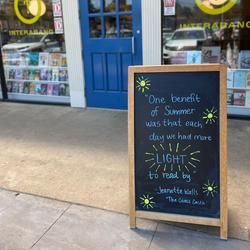 INTERABANG
INTERABANG
"One benefit
of Summer
was that each
day we had more
LIGHT
to read by"
Jeannette Walls
"The Glass Castle"